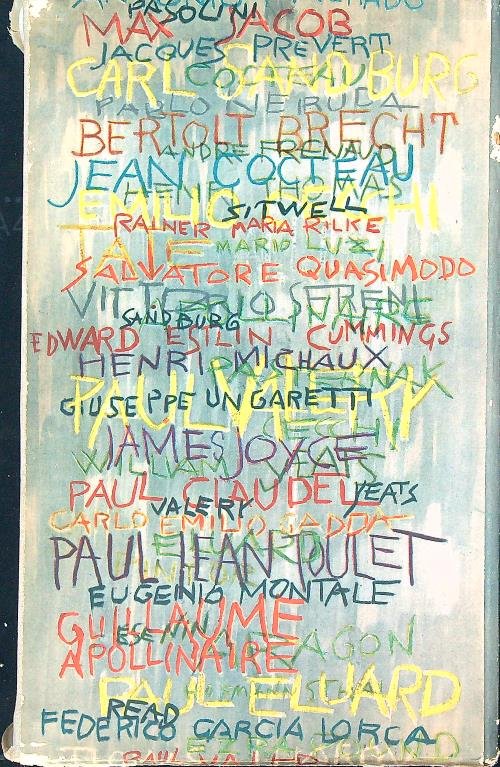 PASOLINI
MAX JACOB
JACQUES PREVERT
CARL SANDBURG
PABLO NERUDA
BERTOLT BRECHT
ANDRE FRENAUD
JEAN COCTEAU
HENRI THOMAS
EMILIO CECCHI
SITWELL
RAINER MARIA RILKE
TATE
MARIO LUZI
SALVATORE QUASIMODO
VITTORIO SERENI
SANDBURG
EDWARD ESILIN CUMMINGS
HENRI MICHAUX
PASTERNAK
PAUL VALERY
GIUSEPPE UNGARETTI
CECCHI
JAMES JOYCE
WILLIAM YEATS
PAUL CLAUDEL
YEATS
VALERY
CARLO EMILIO GADDA
PAUL JEAN TOULET
EUGENIO MONTALE
GUILLAUME
ESENIN
ARAGON
APOLLINAIRE
PAUL ELUARD
READ
FEDERICO GARCIA LORCA
EZRA POUND